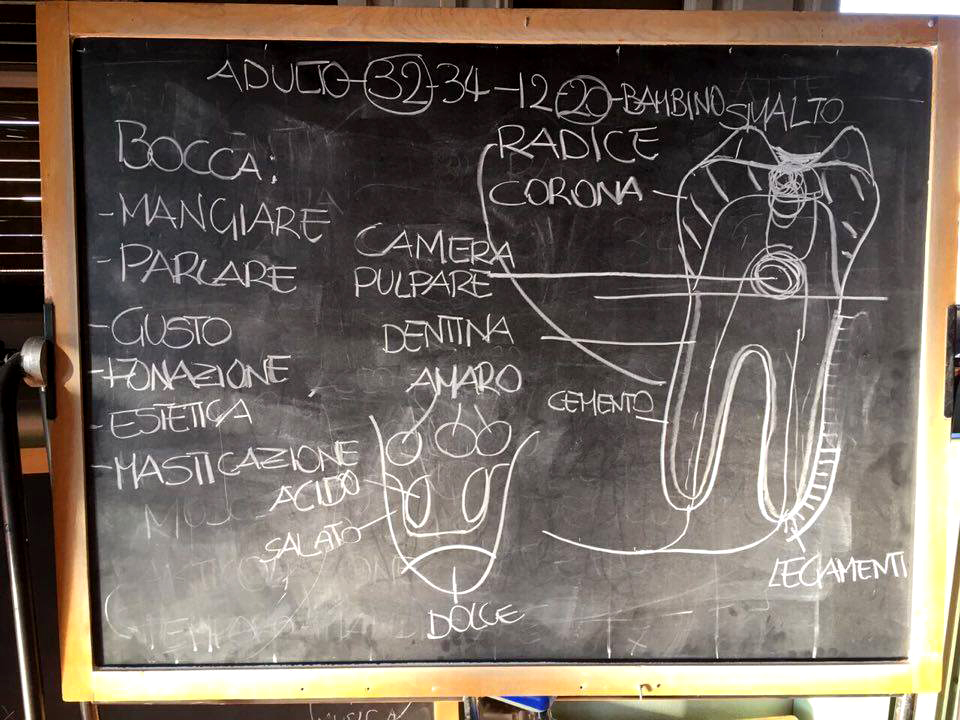 ADULTO-32-34-12-20-BAMBINO
SMALTO
BOCCA:
-MANGIARE
-PARLARE
-GUSTO
-FONAZIONE
-ESTETICA
-MASTICAZIONE
RADICE
CORONA
CAMERA
PULPARE
DENTINA
AMARO
CEMENTO
ACIDO
SALATO
DOLCE
LEGAMENTI